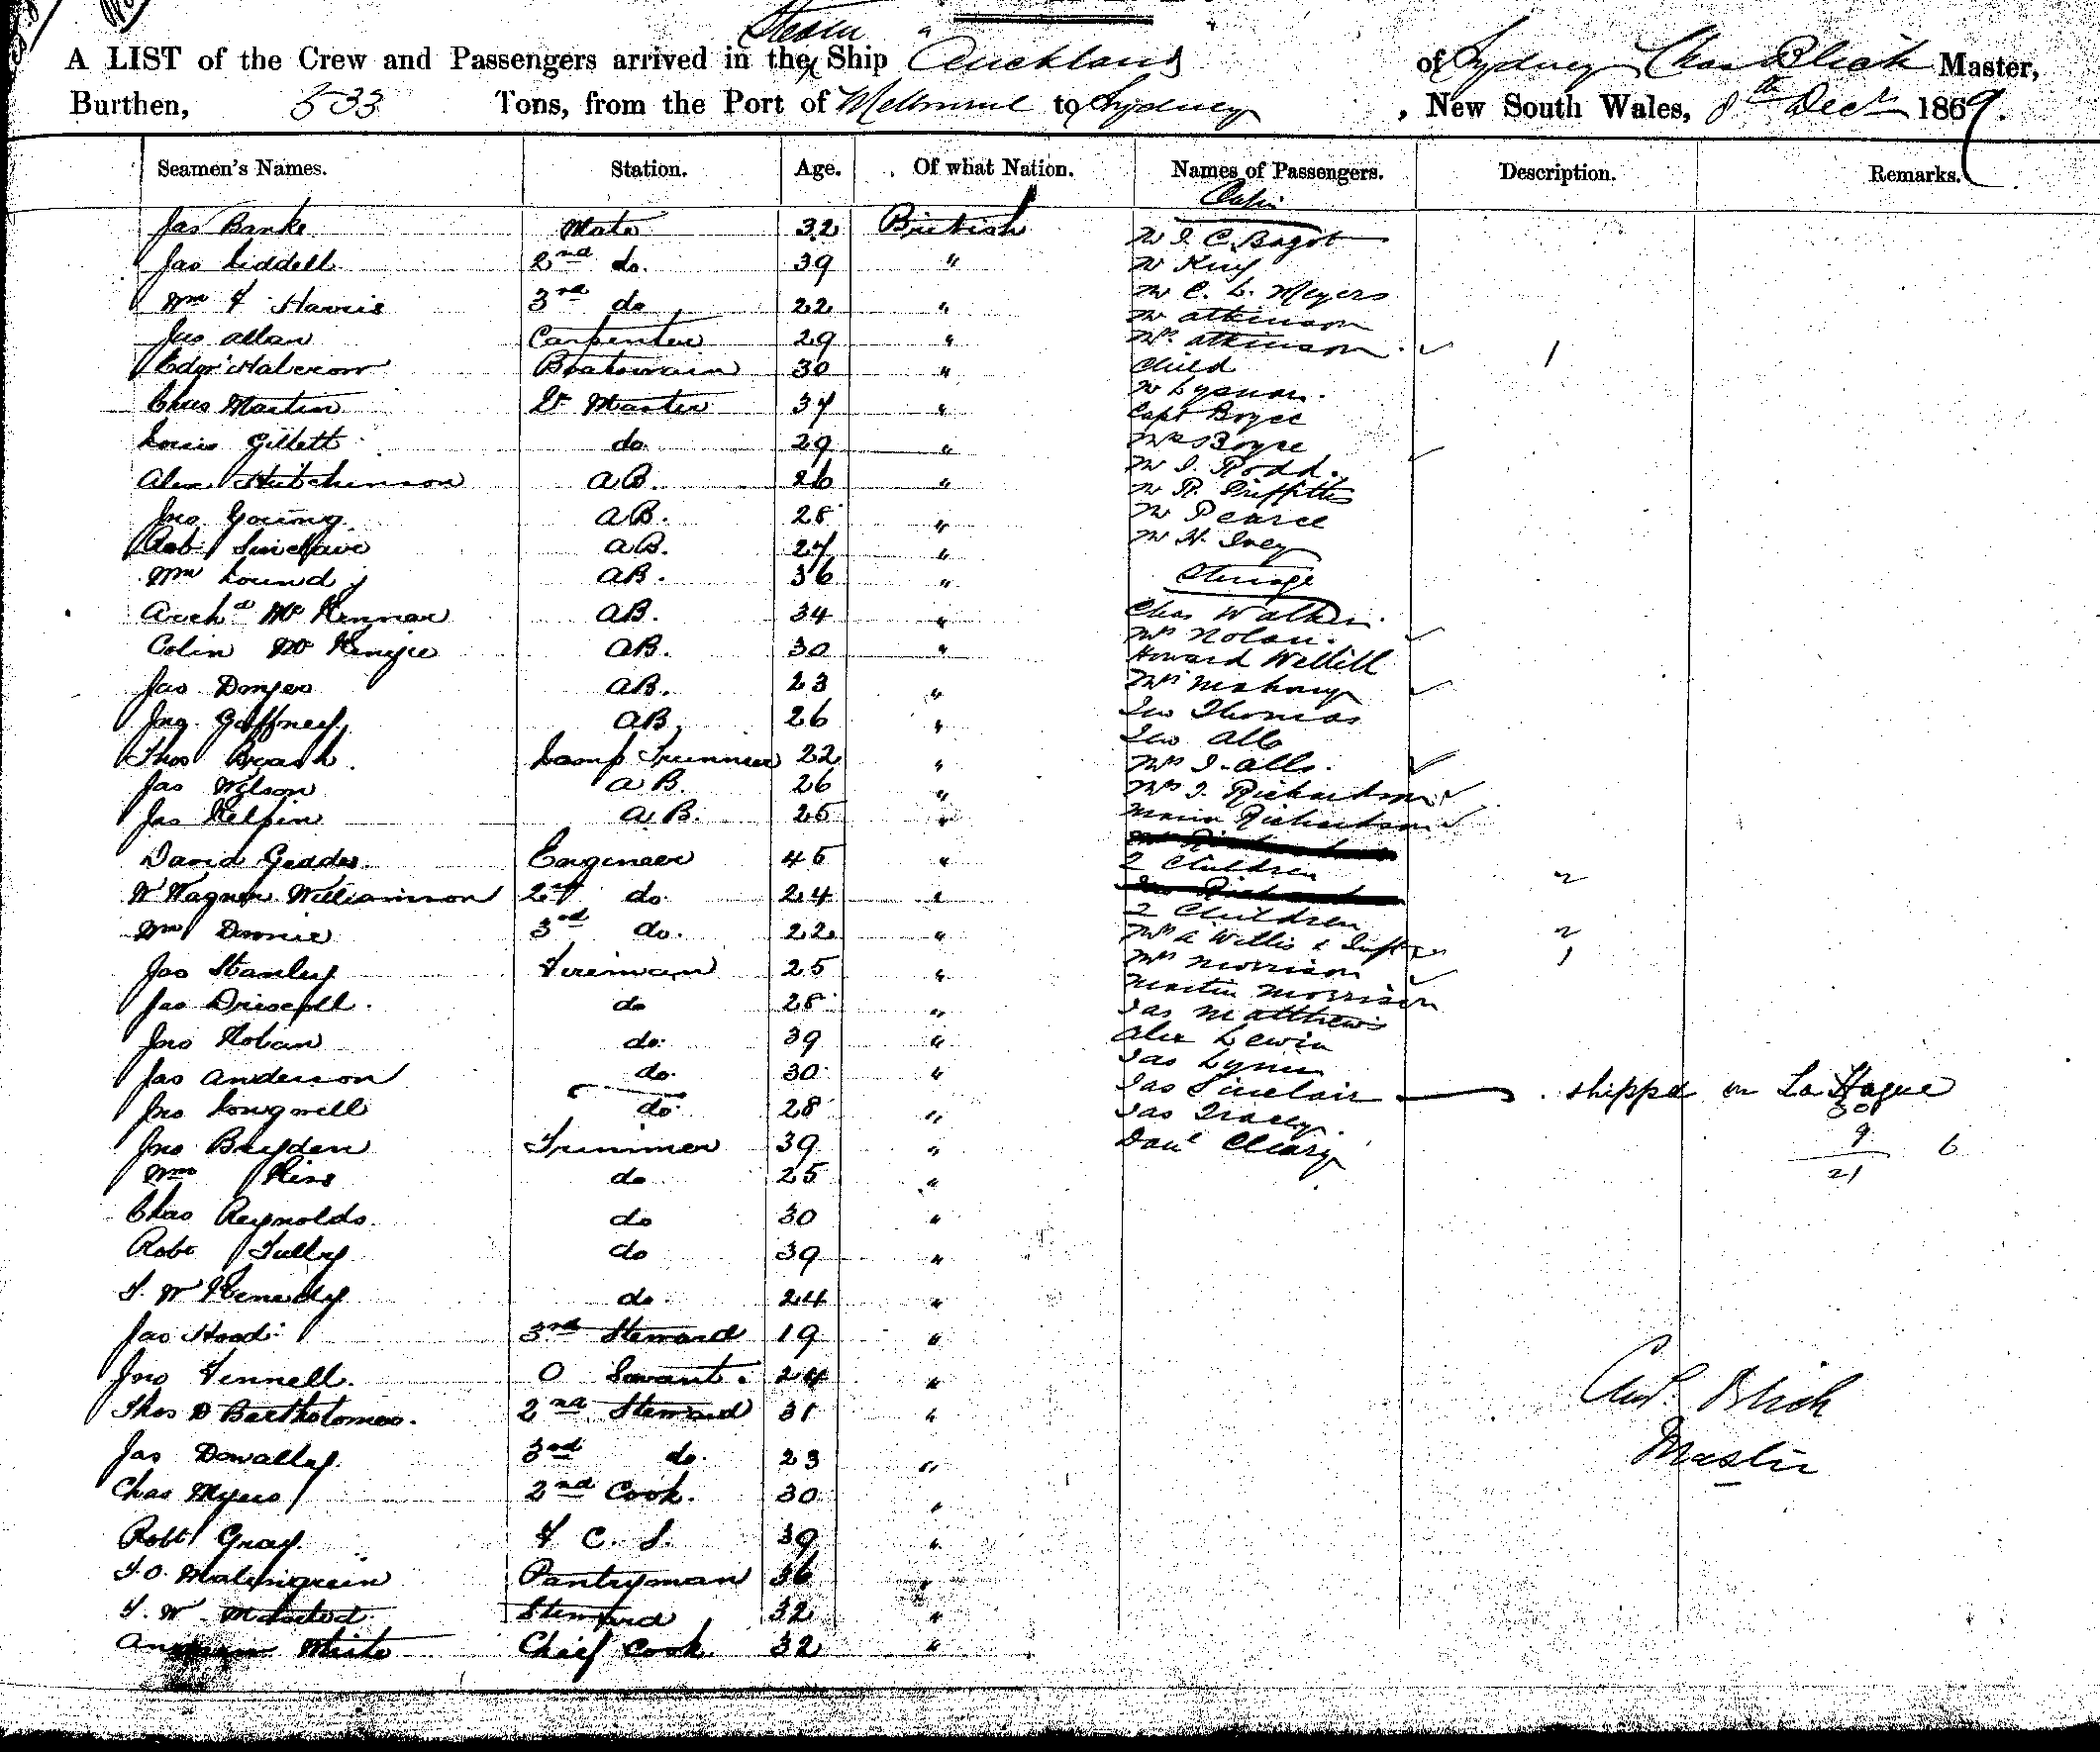 Steam
A LIST of the Crew and Passengers arrived in the Ship Auckland of Sydney Chas Blick Master,
Burthen, 533 Tons, from the Port of Melbourne to Sydney , New South Wales, 8th Decr 1869.
Seamen's Names. Station. Age. Of what Nation. Names of Passengers. Description. Remarks.
Cabin
Jas Banks Mate 32 British Mr I. C. Bagot
Jas Liddell 2nd do. 39 " Mr King
Wm F Harris 3rd do 22 " Mr C. L. Meyers
Mr Atkinson
Jas Allan Carpenter 29 " Mrs Atkinson 1
Edgr Halcrow Boatswain 30 " Child
Mr Lysnar.
Chas Martin Qr Master 34 " Capt Boyce
Louis Gillett do 29 " Mrs Boyce
Alex Hutchinson AB. 26 " Mr I. Rodd.
Mr R. Griffiths
Jno Young AB. 28 " Mr Pearce
Rob Sinclair AB. 24 " Mr H. Ivey
Wm Lound AB. 36 " Steerage
Archd Mc Kinnar AB. 34 " Chas Walker
Mrs Nolan.
Colin Mc Kenzie AB. 30 " Howard Wellill
Jas AB. 23 " Mrs Mahony
Jno Gaffney AB. 26 " Thomas
Thos Brash. Lamp Trimmer 22 " Mrs I.
Jas Wilson AB. 26 " Mrs I. Richardson
Jas Kelpin AB. 25 " Maria Richardson
David Geddes Engineer 45 " 2 Children 2
W Wagner Williamson 2nd do. 24 "
2 Children 2
Wm 3rd do. 22 " Mrs A Willis & Inft 1
Jas Stanley Fireman 25 " Mrs Morrison
Martin Morrison
Jas Driscoll. do 28 " Jas Matthews
Jno Hoban do. 39 " Alex Lewin
Jas Anderson do. 30 " Jas Lynn
Jas Sinclair shippd on La Hague
Jno Longwell do. 28 " Jas Tracey. 30
Jno Bryden Trimmer 39 " Danl Cleary 9 6
Wm do 25 " 21
Chas Reynolds. do 30 "
Robt Tully do 39 "
F. W Kenedy do. 24 "
Jas Hood 3rd Steward 19 "
Jno Fennell. O Servant. 24 "
Thos D Bartholomew. 2nd Steward 31 "
Chas Blick
Jas Dowalley 3rd do. 23 "
Master
Chas Myers 2nd Cook. 30 "
Robt Gray. F C. S. 39 "
Pantryman 36 "
F. W. Steward 32 "
White Chief Cook 32 "